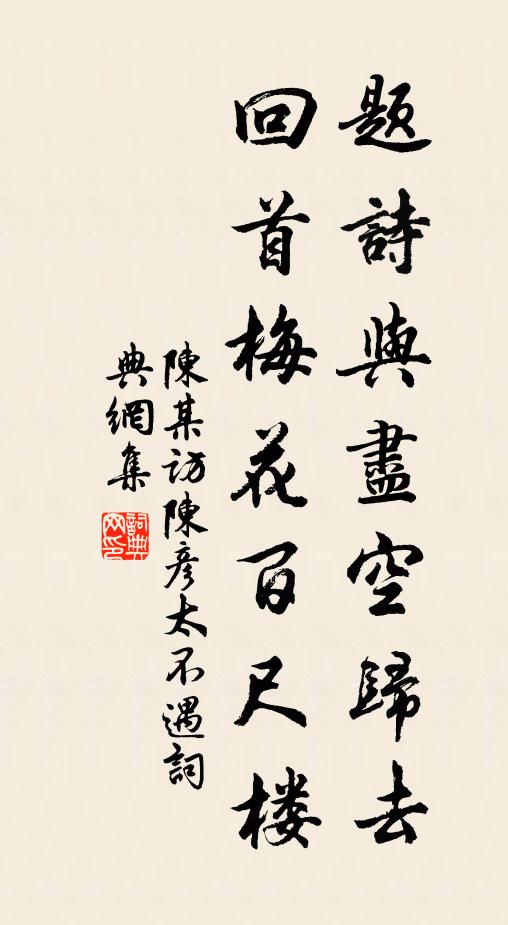 題詩與盡空歸去
回首梅花百尺楼
陳某訪陳彥太不遇詞
典網集
詞典
网印